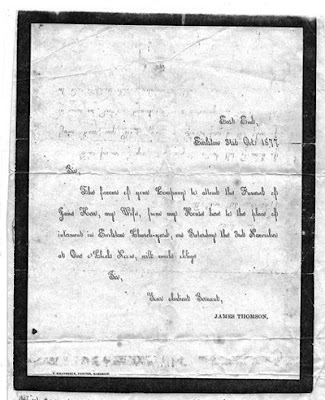 East End,
Earlston 31st Octr 1877
Sir,
The favour of your Company to attend the Funeral of
Jane Kerr, my Wife, from my House here to the place of
interment in Earlston Church-yard, on Saturday the 3rd November
at One o'Clock Noon, will much oblige
Sir,
Your obedient Servant,
JAMES THOMSON.
PRINTER,